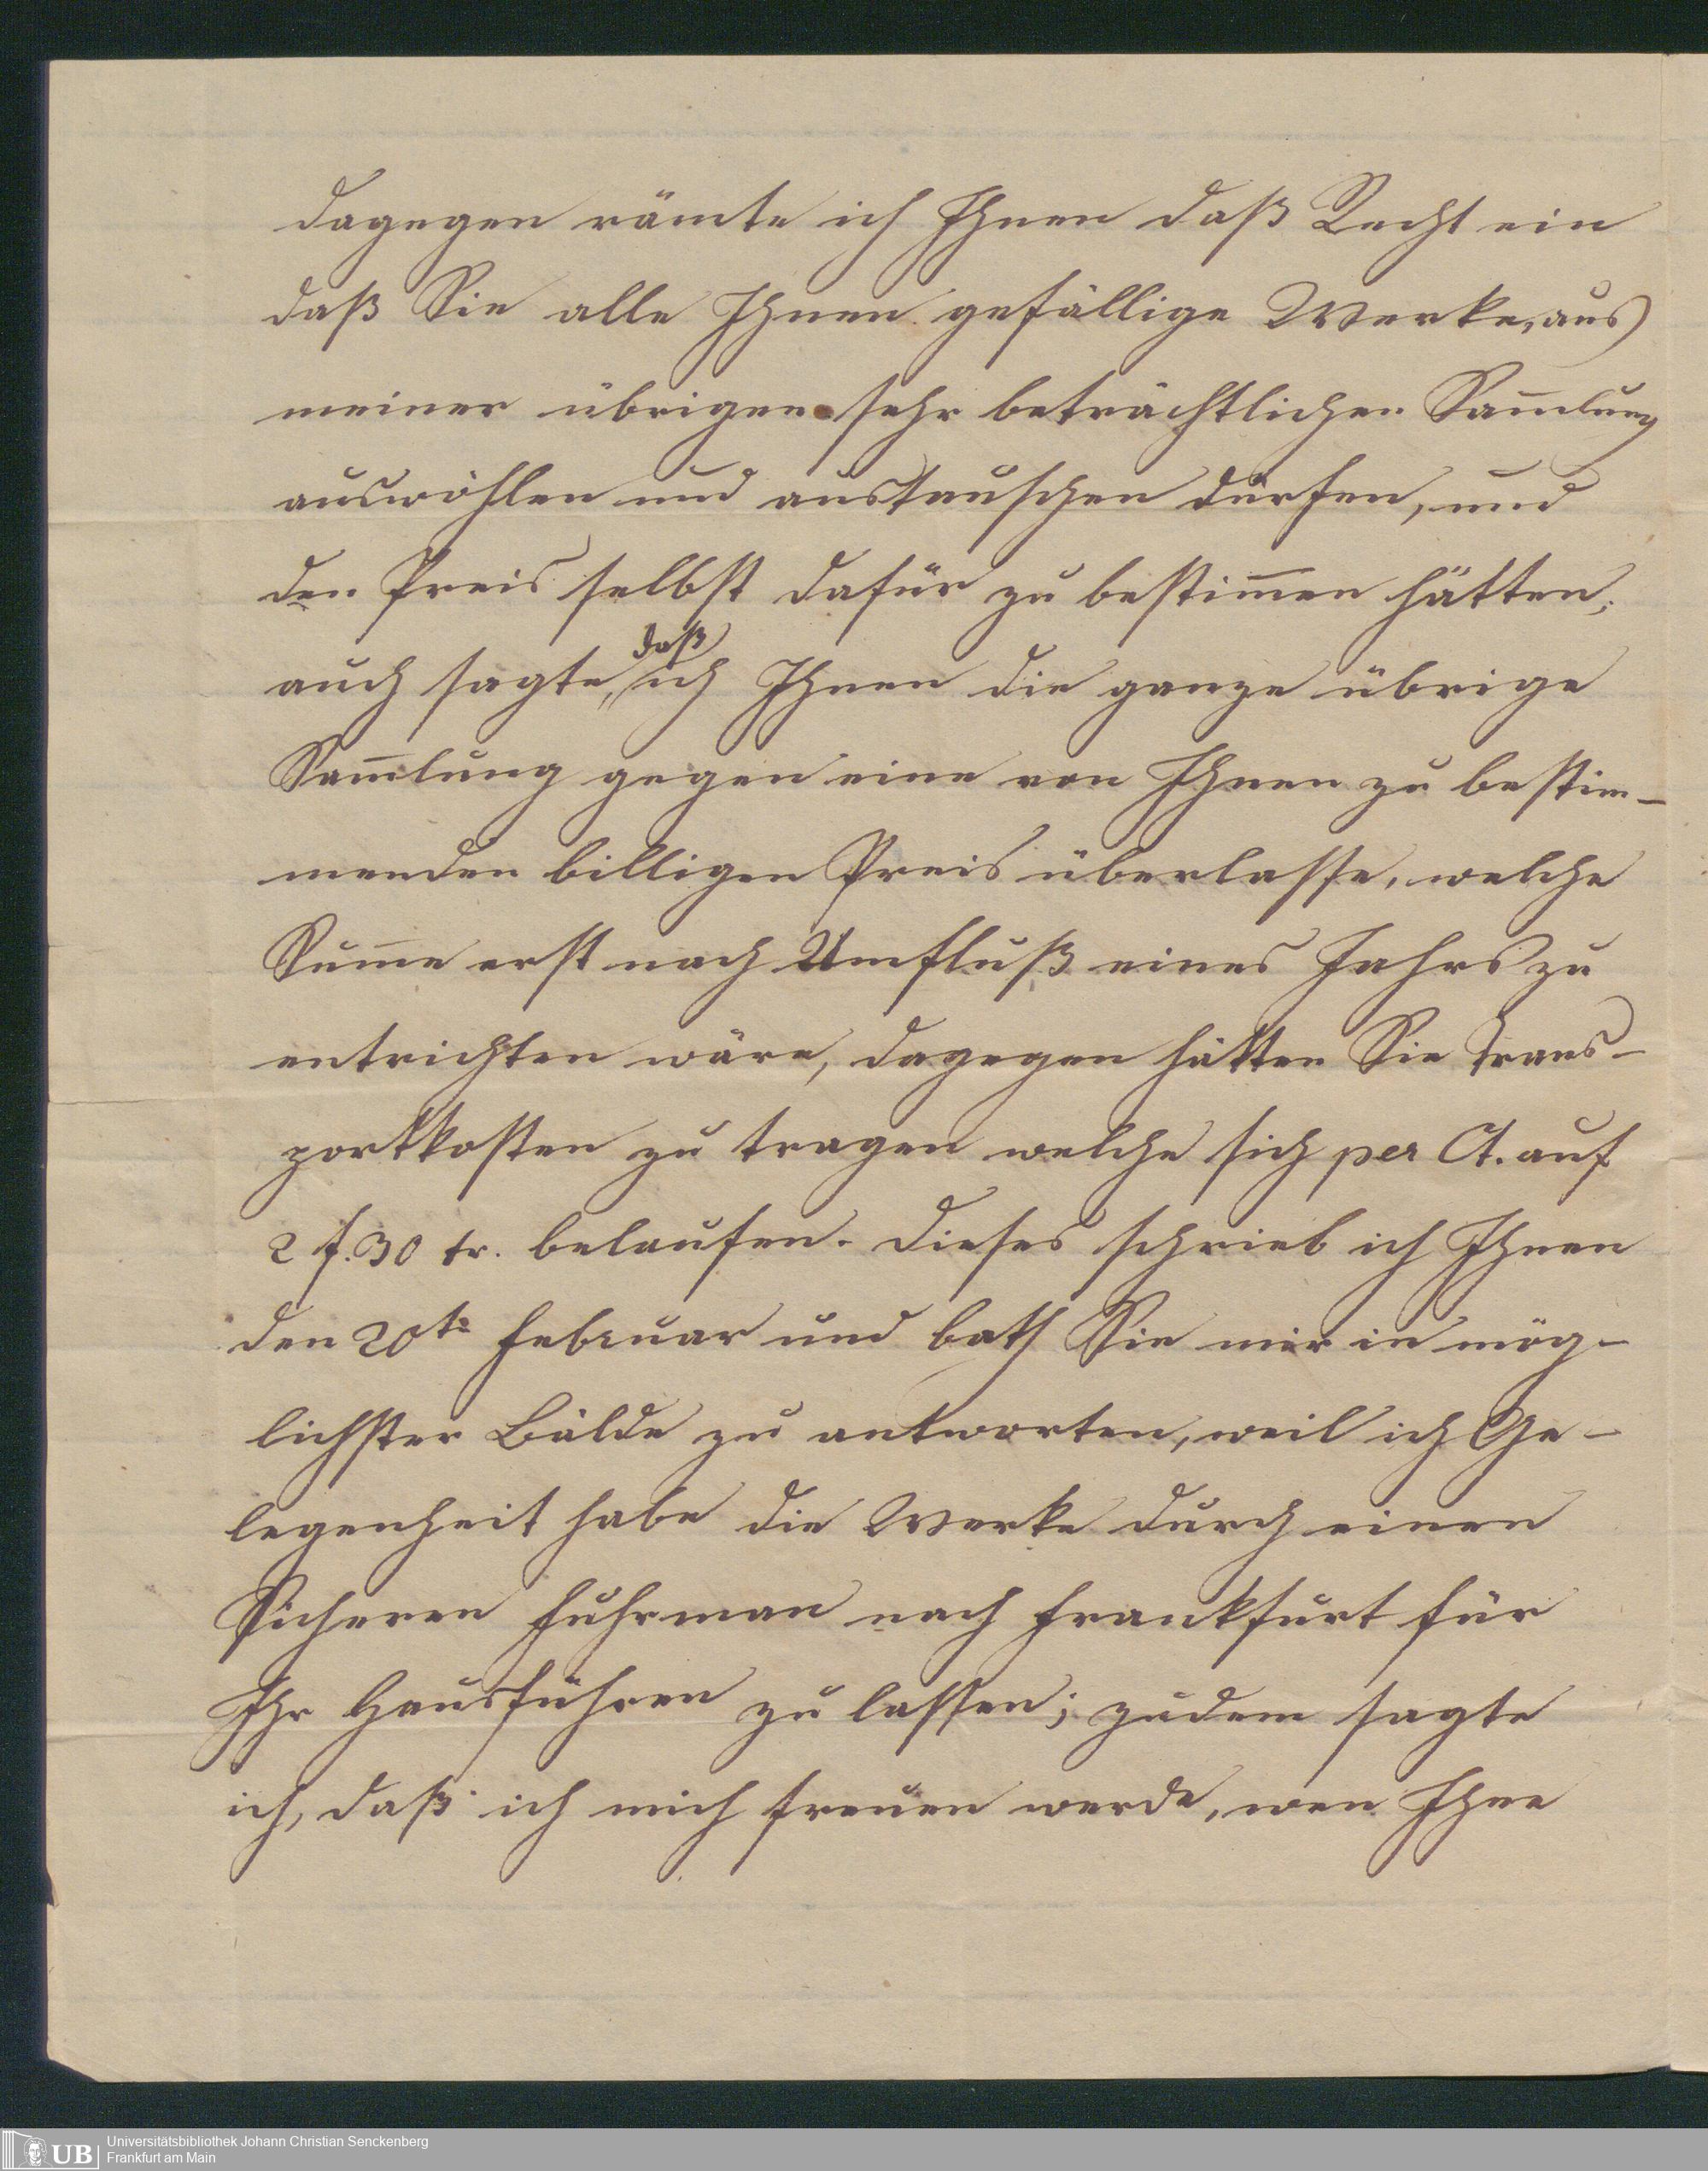 dagegen rämte ich Ihnen daß Recht ein
daß Sie alle Ihnen gefällige Werke, aus
meiner übrigen sehr beträchtlichen Sam̄lung
auswählen und austauschen dürfen, und
den Preis selbst dafür zu bestim̄en hätten;
auch sagte, daß ich Ihnen die ganze übrige
Sam̄lung gegen eine von Ihnen zu bestim-
menden billigen Preis überlasse, welche
Sum̄e erst nach Umfluß eines Jahrs zu
entrichten wäre, dagegen hätten Sie Trans-
portkosten zu tragen welche sich per Ct. auf
2 f. 30 kr. belaufen. Dieses schrieb ich Ihnen
den 20t Februar und bath Sie mir in mög-
lichster Bälde zu antworten, weil ich Ge-
legenheit habe die Werke durch einen
Sicheren Fuhrman nach Frankfurt für
Ihr Haus führen zu lassen; zudem sagte
ich, daß ich mich freuen werde, wen Ihne
Universitätsbibliothek Johann Christian Senckenberg
UB Frankfurt am Main